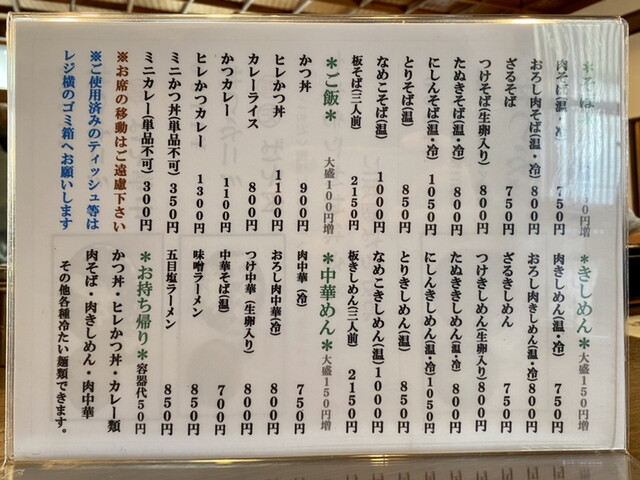 ＊そば＊
肉そば(温・冷) 750円
おろし肉そば(温・冷) 800円
ざるそば 750円
つけそば(生卵入り) 800円
たぬきそば(温・冷) 800円
にしんそば(温・冷) 1050円
とりそば(温) 850円
なめこそば(温) 1000円
板そば(三人前) 2150円
＊ご飯＊ 大盛100円増
かつ丼 900円
ヒレかつ丼 1100円
カレーライス 800円
かつカレー 1100円
ヒレかつカレー 1300円
ミニかつ丼(単品不可) 350円
ミニカレー(単品不可) 300円
※お席の移動はご遠慮下さい
※ご使用済みのティッシュ等は
レジ横のゴミ箱へお願いします
＊きしめん＊ 大盛150円増
肉きしめん(温・冷) 750円
おろし肉きしめん(温・冷) 800円
ざるきしめん 750円
つけきしめん(生卵入り) 800円
たぬききしめん(温・冷) 800円
にしんきしめん(温・冷) 1050円
とりきしめん(温) 850円
なめこきしめん(温) 1000円
板きしめん(三人前) 2150円
＊中華めん＊ 大盛150円増
肉中華(冷) 750円
おろし肉中華(冷) 800円
つけ中華(生卵入り) 800円
中華そば(温) 700円
味噌ラーメン 850円
五目塩ラーメン 850円
＊お持ち帰り＊ 容器代50円
かつ丼・ヒレかつ丼・カレー類
肉そば・肉きしめん・肉中華
その他各種冷たい麺類できます。